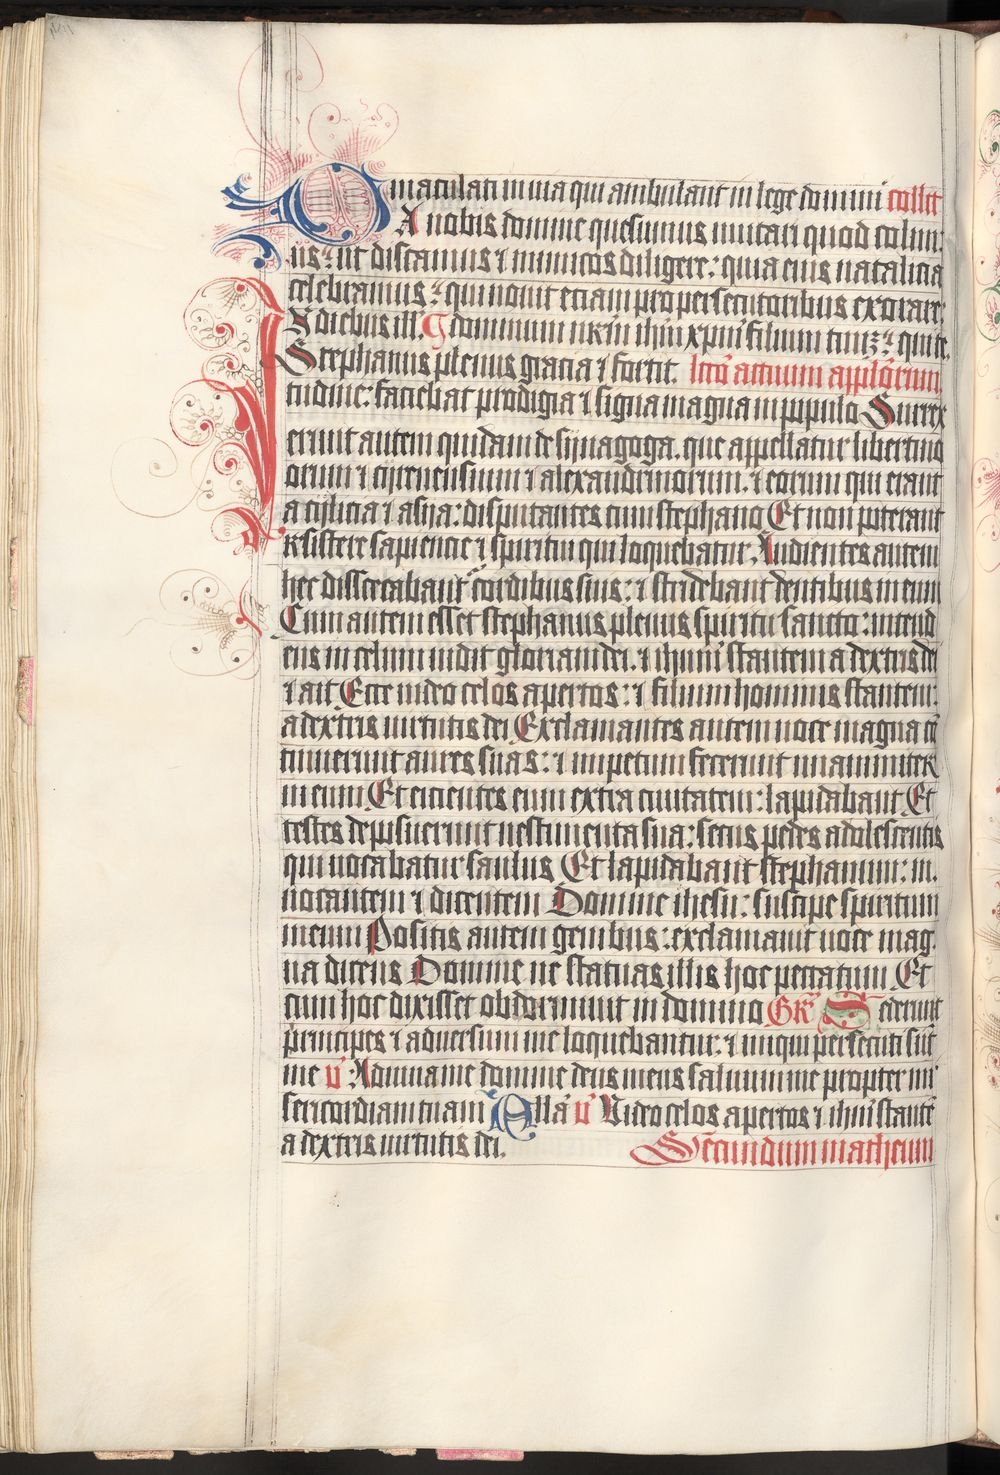 maculati in uia qui ambulant in lege domini collct
A nobis domine quesumus imitari quod colim:
us: ut discamus ⁊ inimicos diligere: quia eius natalicia
celebramus: qui nouit eciam pro persecutoribus exorare:
N diebus ill. dominum nrm ihm xpm filium tuu: qui te.
Stephanus plenus gracia ⁊ fortit. lcco actuum applorum.
tudine: faciebat prodigia ⁊ signa magna in populo Surrex
erunt autem quidam de synagoga. que appellatur libertino
orum ⁊ cyrenensium ⁊ alexandrinorum. ⁊ eorum qui erant
a cylicia ⁊ asya: disputantes cum stephano Et non poterant
resistere sapiencie ⁊ spiritui qui loquebatur. Audientes autem
hec dissecabant cordibus suis: ⁊ stridebant dentibus in eum
Cum autem esset stephanus plenus spiritu sancto: intend
ens in celum uidit gloriam dei. ⁊ ihum stantem a dextris dei
⁊ ait Ecce uideo celos apertos: ⁊ filium hominis stantem:
a dextris uirtutis dei Exclamantes autem uoce magna cō
tinuerunt aures suas: ⁊ impetum fecerunt unanimiter
in eum Et eicientes eum extra ciuitatem: lapidabant Et
testes deposuerunt uestimenta sua: secus pedes adolescentis
qui uocabatur saulus Et lapidabant stephanum: in.
uocantem ⁊ dicentem Domine ihesu: suscipe spiritum
meum Positis autem genibus: exclamauit uoce mag.
na dicens Domine ne statuas illis hoc peccatum Et
cum hoc dixisset obdormiuit in domino Gr̄ Sederunt
principes ⁊ aduersum me loquebantur: ⁊ iniqui persecuti sūt
me v̄ Adiuua me domine deus meus saluum me propter mi
sericordiam tuam Alla v̄ Uideo celos apertos ⁊ ihm stantē
a dextris uirtutis dei. Secundum matheum